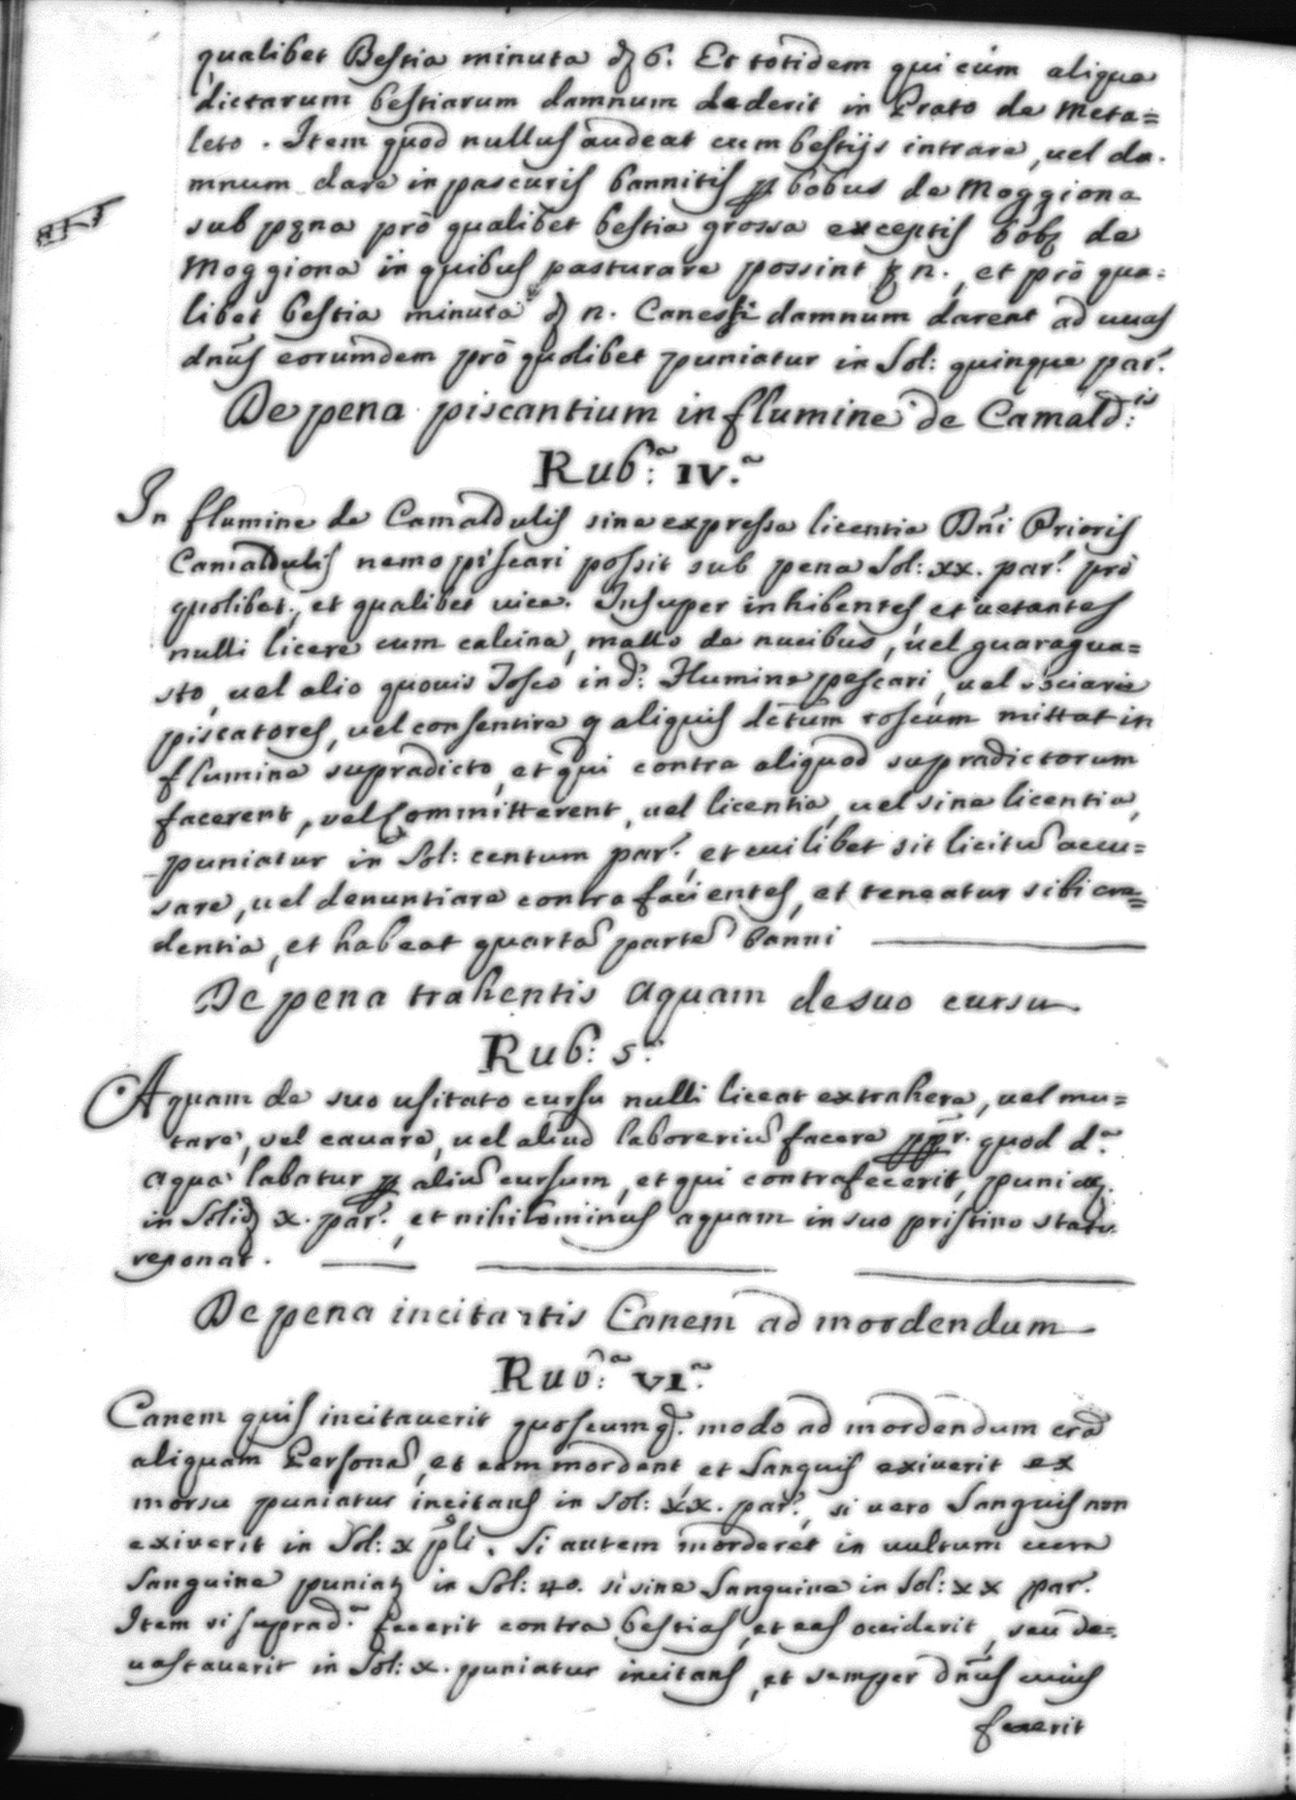 qualibet Bestia minuta ꝺ 6. Et totidem qui cum aliqua
dictarum bestiarum damnum dederit in Prato de Meta=
leto. Item quod nullus audeat cum bestijs intrare, uel da.
mnum dare in pascuris bannitis ꝑ bobus de Moggiona
sub pęna prò qualibet bestia grossa exceptis bobꝫ de
Moggiona in quibus pasturare possint ꝺ n., et prò qua=
libet bestia minuta ꝺ n. Canes si damnum darent ad uuas
dnūs eorumdem prò quolibet puniatur in Sol: quinque par.
De pena piscantium in flumine de Camald:is
Rub:a IV.a
In flumine de Camaldulis sine expressa licentia Dnī Prioris
Camaldulis nemo piscari possit sub pena Sol: xx. par. prò
quolibet, et qualibet uice. Insuper inhibentes, et uetantes
nulli licere cum calcina, mallo de nucibus, uel guaragua=
sto, uel alio quouis Tosco in d.o Flumine pescari, uel sociare
piscatores, uel consentire q aliquis dc̄tum toscum mittat in
flumine supradicto, et qui contra aliquod supradictorum
facerent, uel Committerent, uel licentia, uel sine licentia,
puniatur in Sol: centum par. et cuilibet sit licitū accu=
sare, uel denuntiare contra facientes, et teneatur sibi cre=
dentia, et habeat quartā partē banni
De pena trahentis aquam de suo cursu
Rub: 5.a
Aquam de suo usitato cursu nulli liceat extrahere, uel mu=
tare, uel cauare, uel aliud laboreriū facere ꝑꝑr. quod d.a
aqua labatur ꝑ aliū cursum, et qui contrafecerit, puniaꝫ.
in Solid x. par., et nihilominus aquam in suo pristino statu
reponat.
De pena incitantis Canem ad mordendum
Rub:a VI.a
Canem quis incitauerit quoscumq. modo ad mordendum
aliquam Personā, et eam mordent, et Sanguis exiuerit ex
morsu puniatur incitans in Sol: xx. par., si uero Sanguis non
exiuerit in Sol: x pli. Si autem morderet in uultum cum
Sanguine puniatꝫ in Sol: 40. si sine Sanguine in Sol: xx par.
Item si suprad.a fecerit contra bestias, et eas occiderit, seu de=
uastauerit in Sol: x. puniatur incitans, et semper dnūs cuius
fecerit